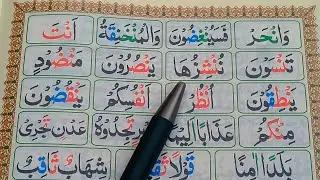 وَانْحَرْ فَسَيُنْغِضُونَ وَالْمُنْخَنِقَةُ اَنْتَ
تَنْسَوْنَ نُنْشِزُهَا يَنْصُرُونَ مَنْضُودٍ
يَنْطِقُونَ اُنْظُرْ نْفُسَكُمْ يَنْقُضُونَ
مِنْكُمْ عَذَابًا تَجِدُوهُ عَدْنٍ تَجْرِیْ
بَلَدًا اٰمِنًا قَوْلًا شِهَابٌ ثَاقِبٌ